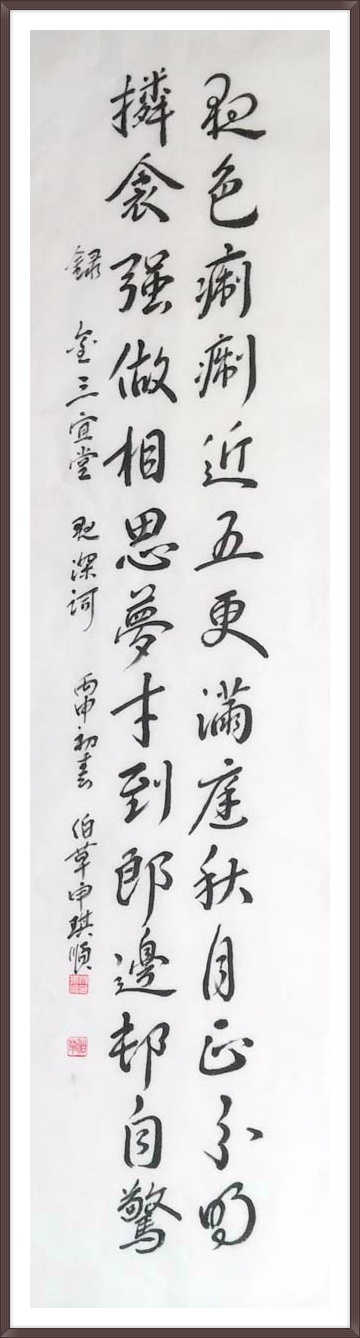 夜色近五更滿庭秋月正分明
撛衾强做相思夢才到郎邊却自驚
錄 金三宜堂 夜深詞 丙申初春 伯草申琪順